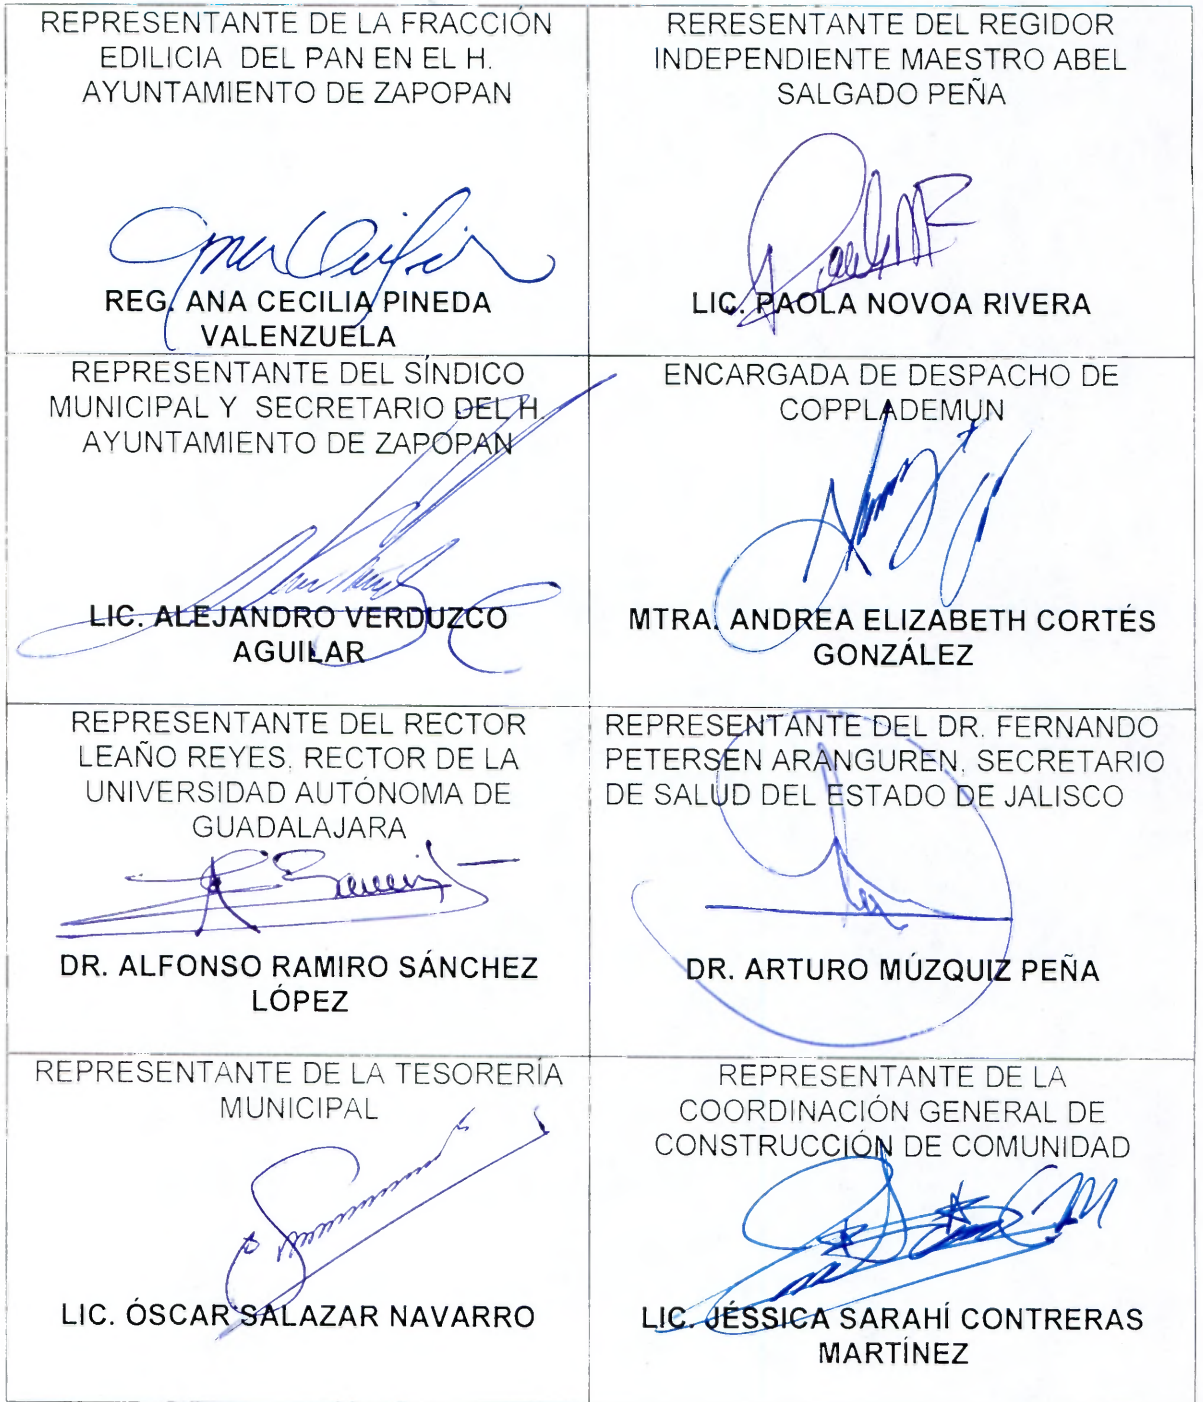 REPRESENTANTE DE LA FRACCIÓN
EDILICIA DEL PAN EN EL H.
AYUNTAMIENTO DE ZAPOPAN
REG. ANA CECILIA PINEDA
VALENZUELA
RERESENTANTE DEL REGIDOR
INDEPENDIENTE MAESTRO ABEL
SALGADO PEÑA
LIC. PAOLA NOVOA RIVERA
REPRESENTANTE DEL SÍNDICO
MUNICIPAL Y SECRETARIO DEL H.
AYUNTAMIENTO DE ZAPOPAN
LIC. ALEJANDRO VERDUZCO
AGUILAR
ENCARGADA DE DESPACHO DE
COPPLADEMUN
MTRA. ANDREA ELIZABETH CORTÉS
GONZÁLEZ
REPRESENTANTE DEL RECTOR
LEAÑO REYES, RECTOR DE LA
UNIVERSIDAD AUTÓNOMA DE
GUADALAJARA
DR. ALFONSO RAMIRO SÁNCHEZ
LÓPEZ
REPRESENTANTE DEL DR. FERNANDO
PETERSEN ARANGUREN, SECRETARIO
DE SALUD DEL ESTADO DE JALISCO
DR. ARTURO MÚZQUIZ PEÑA
REPRESENTANTE DE LA TESORERÍA
MUNICIPAL
LIC. ÓSCAR SALAZAR NAVARRO
REPRESENTANTE DE LA
COORDINACIÓN GENERAL DE
CONSTRUCCIÓN DE COMUNIDAD
LIC. JÉSSICA SARAHÍ CONTRERAS
MARTÍNEZ